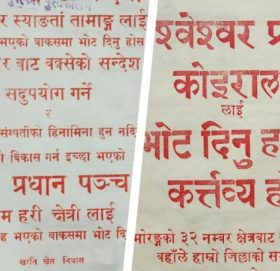 र स्याङता तामाङ्ग लाई
भएको बाकसमा भोट दिनु होस
र बाट वक्सेको सन्देश
सदुपयोग गर्ने
र
संम्पतीको हिनामिना हुन नदि
विकास गर्न इच्छा भएको
प्रधान पञ्च
म हरी क्षेत्री लाई
भएको बाकसमा भोट दि
खानि खेत निवास
श्वेश्वर प्र
कोइराल
लाई
भोट दिनु ह
कर्त्तव्य ह
मोरङ्गको ३२ नम्बर क्षेत्रबाट
वहाँले हाम्रो जिल्लाको स